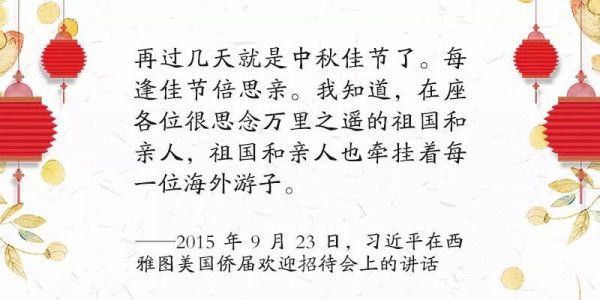 再过几天就是中秋佳节了。每
逢佳节倍思亲。我知道，在座
各位很思念万里之遥的祖国和
亲人，祖国和亲人也牵挂着每
一位海外游子。
——2015 年 9 月 23 日，习近平在西
雅图美国侨届欢迎招待会上的讲话